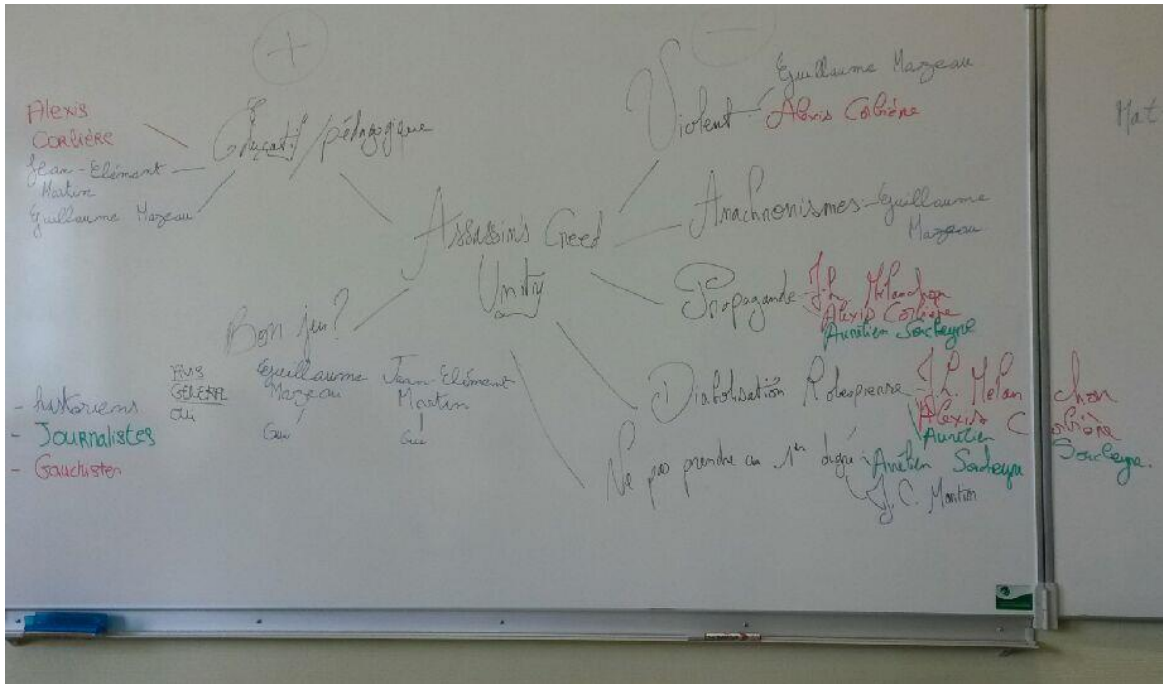 +
Alexis
CORBIÈRE
Jean-Clément
Martin
Guillaume Mazeau
Éducatif/pédagogique
Assassin's Creed
Unity
Bon jeu?
AVIS
GÉNÉRAL
OUI
Guillaume
Mazeau
Oui
Jean-Clément
Martin
Oui
- historiens
- JOURNAlistes
- Gauchistes
-
Violent - Guillaume Mazeau
Alexis Corbière
Anachronismes - Guillaume
Mazeau
Propagande - J.L. Mélanchon
Alexis Corbière
Aurélien Soucheyre
Diabolisation Robespierre - J.L. Mélanchon
Alexis Corbière
Aurélien Soucheyre.
Ne pas prendre au 1er degré - Aurélien Soucheyre
J.C. Martin
Mat